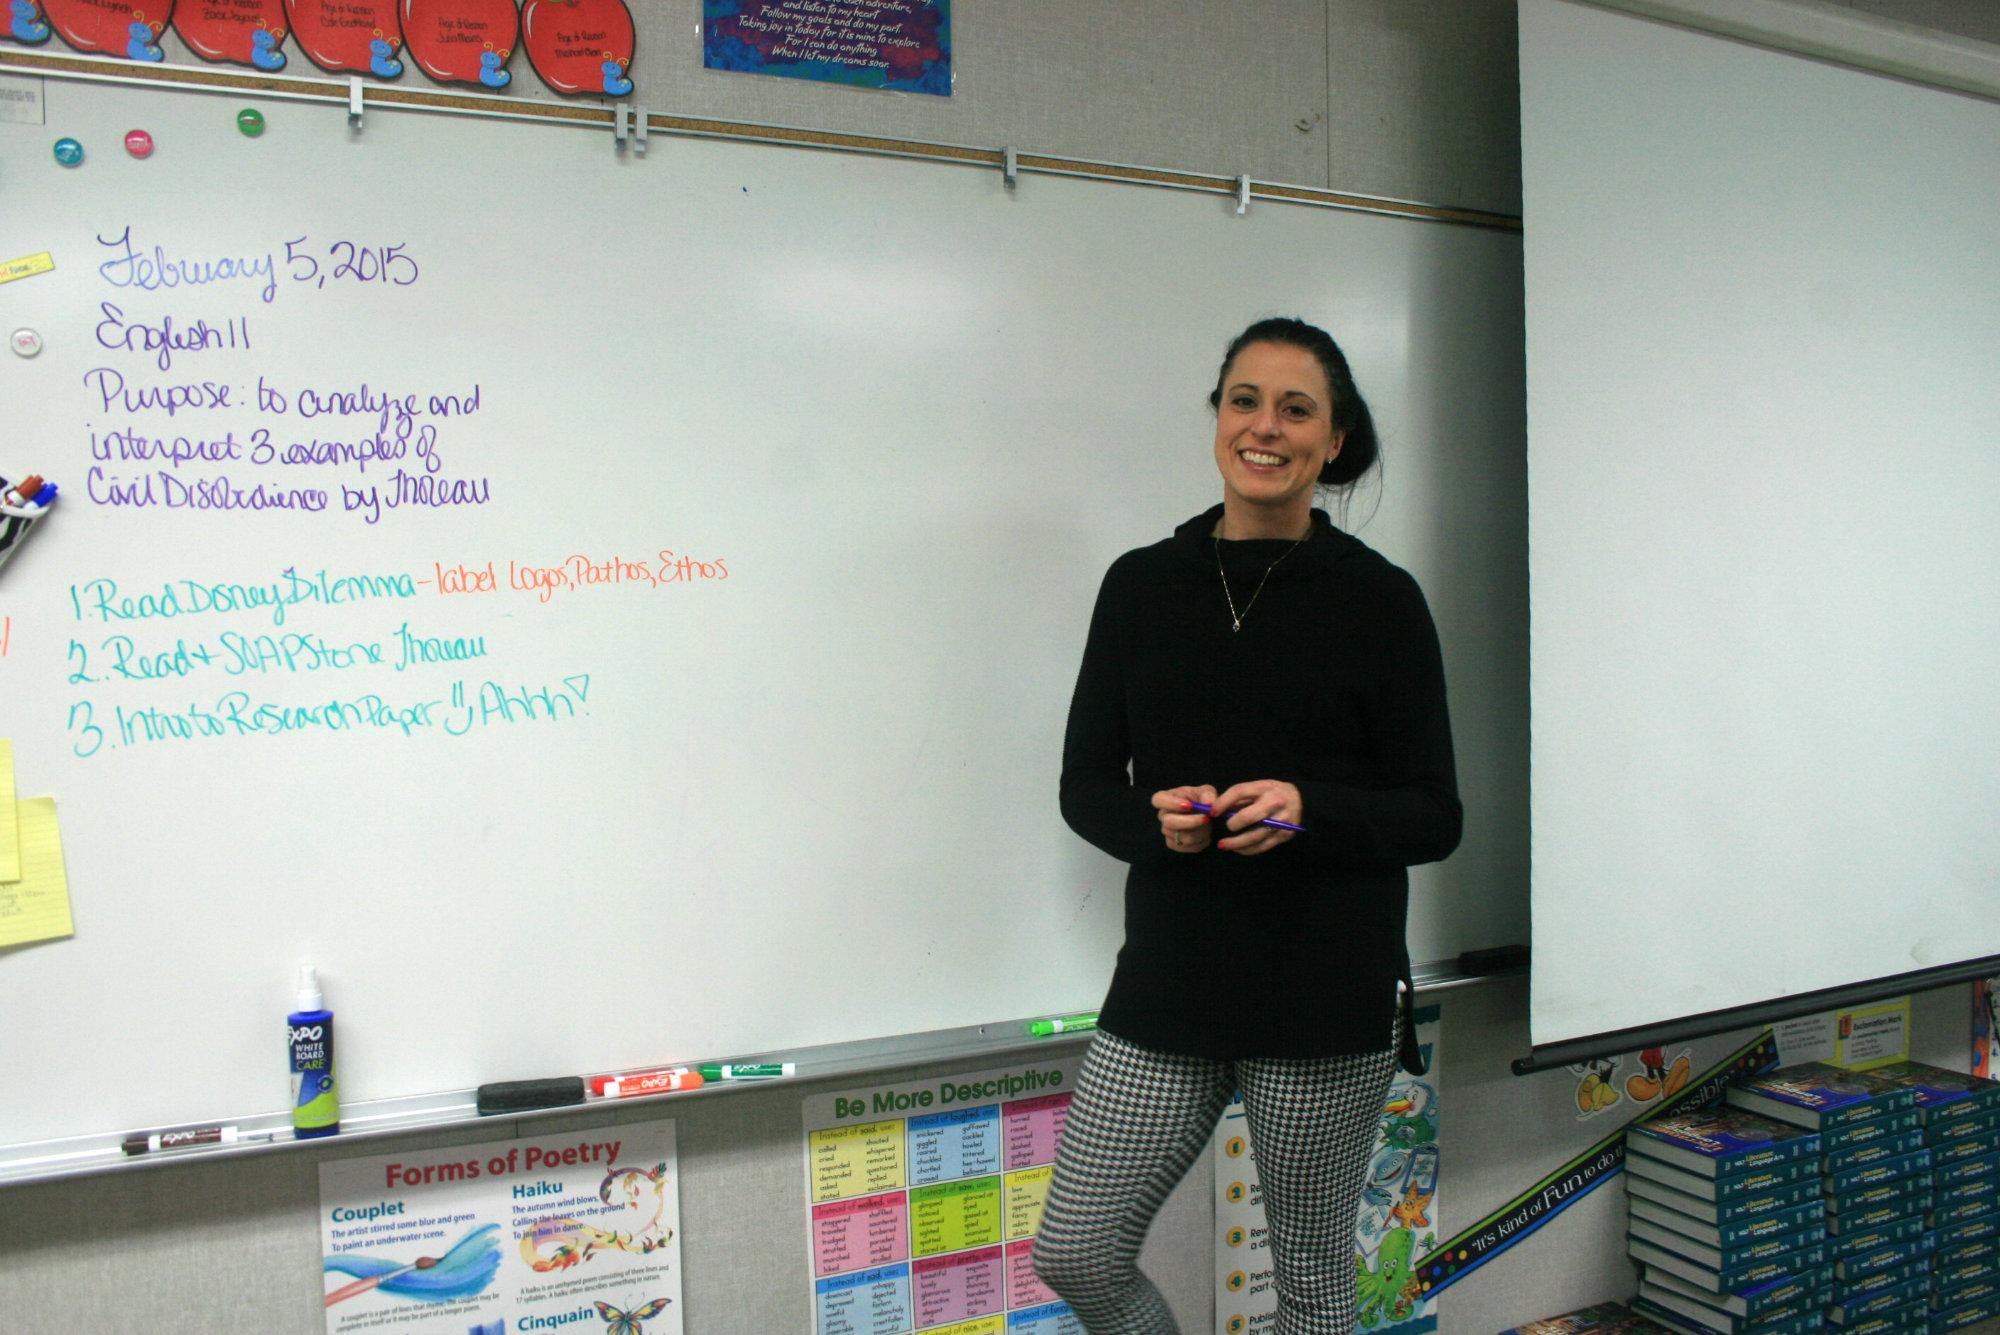 Age of Reason
Cole Eastland
Age of Reason
Age of Reason
and listen to my heart
Follow my goals and do my part.
Taking joy in today for it is mine to explore
For I can do anything
When I let my dreams soar.
February 5, 2015
English 11
Purpose: to analyze and
interpret 3 examples of
Civil Disobedience by Thoreau
1. Read Disney Dilemma - label Logos, Pathos, Ethos
2. Read + SOAPStone Thoreau
3. Intro to Research Paper Ahhh!
EXPO
WHITE
BOARD
CARE
EXPO
EXPO
EXPO
Forms of Poetry
Couplet
The artist stirred some blue and green
To paint an underwater scene.
A couplet is a pair of lines that rhyme. The couplet may be
complete in itself or it may be part of a longer poem.
Haiku
The autumn wind blows,
Calling the leaves on the ground
To join him in dance.
A haiku is an unrhymed poem consisting of three lines and
17 syllables. A haiku often describes something in nature.
Cinquain
Be More Descriptive
Instead of said, use:
called shouted
cried whispered
responded remarked
demanded questioned
asked replied
stated exclaimed
Instead of laughed, use:
snickered guffawed
giggled cackled
roared howled
chuckled tittered
chortled hee-hawed
crowed bellowed
hurried
raced
scurried
dashed
galloped
trotted
Instead of walked, use:
staggered shuffled
traveled sauntered
trudged lumbered
strutted paraded
marched ambled
hiked strolled
Instead of saw, use:
glimpsed glanced at
noticed eyed
observed gazed at
sighted spied
spotted examined
stared at watched
Instead of
love
admire
appreciate
fancy
adore
idolize
Instead of sad, use:
downcast unhappy
depressed dejected
woeful forlorn
gloomy melancholy
miserable crestfallen
mournful
Instead of pretty, use:
beautiful exquisite
lovely gorgeous
glamorous stunning
attractive handsome
elegant striking
cute fair
Instead of nice, use:
Instead of funny
1
2
3
4
5
Exclamation Mark
"It's kind of Fun to do the
possible"
HOLT Literature &
Language Arts